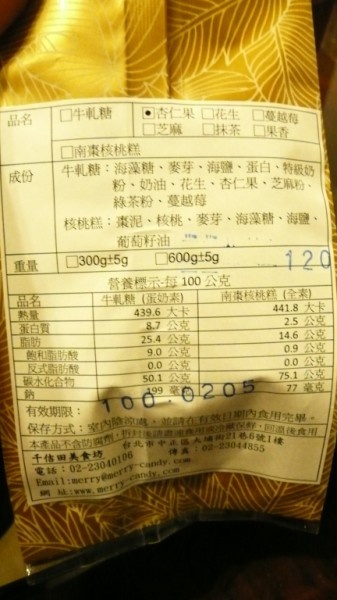 品名 □牛軋糖 ●杏仁果 □花生 □蔓越莓
□芝麻 □抹茶 □果香
□南棗核桃糕
成份 牛軋糖：海藻糖、麥芽、海鹽、蛋白、特級奶
粉、奶油、花生、杏仁果、芝麻粉、
綠茶粉、蔓越莓
核桃糕：棗泥、核桃、麥芽、海藻糖、海鹽、
葡萄籽油
重量 □300g±5g □600g±5g 120
營養標示-每 100 公克
品名 牛軋糖 (蛋奶素) 南棗核桃糕 (全素)
熱量 439.6 大卡 441.8 大卡
蛋白質 8.7 公克 2.5 公克
脂肪 25.4 公克 14.6 公克
飽和脂肪酸 9.0 公克 0.9 公克
反式脂肪酸 0.0 公克 0.0 公克
碳水化合物 50.1 公克 75.1 公克
鈉 199 毫克 77 毫克
有效期限： 100.0205
保存方式：室內陰涼處，並請在有效日期內食用完畢。
本產品不含防腐劑，
千佶田美食坊 台北市中正區大埔街21巷6號1樓
電話：02-23040106 傳真：02-23044855
Email:merry@merry-candy.com
網 址:www.merry-candy.com